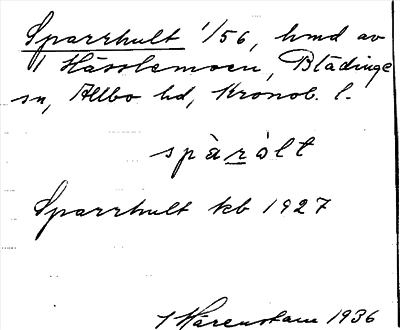 Sparrhult 1/56, hmd av
Hässlemoen, Blädinge
sn, Allbo hd, Kronob. l.
spàràlt
Sparrhult kb 1927
1936